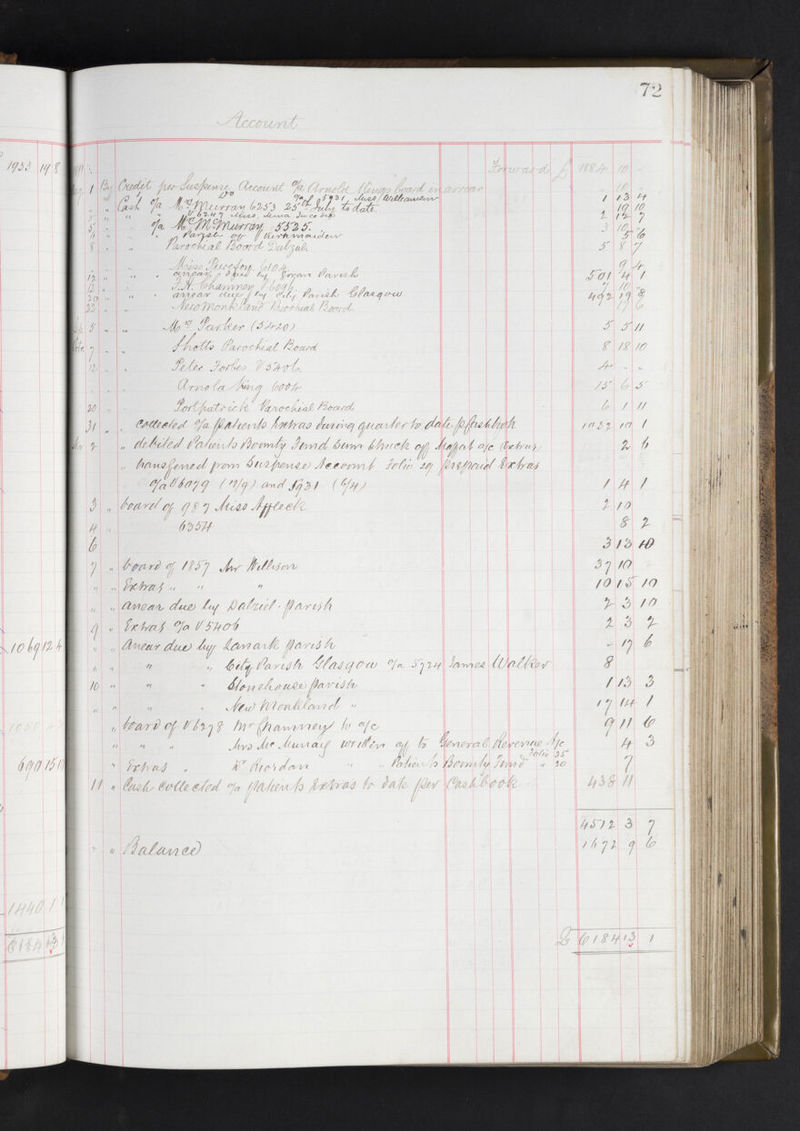 72
Account
1933 19 8
Forward £ 1884 10 -
1 By Credit per Suspense Account o/a Arnold Kings board in arrear 10 -
Cash o/a 5931 Miss Williamson 1 13 4
" Mrs Murray 6253 25th July to date 19 10
2 12 7
5 o/a Mc McMurray 5535. 3 10
Parish of Kirkmaiden 5 6
8 Parochial Board Dalziel 5 8 7
Miss 6104 9 4
12 arrear due by Govan Parish 501 4 1
J.A. Chamney 7 10 -
20 arrear due by City Parish Glasgow 492 19 8
22 New Monkland Parochial Board 17 6
5 " Mrs Parker (5420) 5 5 11
7 Shotts Parochial Board 8 18 10
12 Peter Forbes V5406 4 - -
Arnold King 6004 15 6 5
20 Portpatrick Parochial Board 6 1 11
31 " collected o/a patients Extras during quarter to date p Cashbook 1022 10 1
2 " debited Patients Bounty Fund sum struck off Moffat a/c (Extras) 2 6
" transferred from Suspense Account Folio 29 prepaid Extras
o/a V6079 (17/9) and 5931 (6/4) 1 4 1
3 " board of 987 Miss Affleck 2 10
4 " 6354 8 2
6 3 13 10
7 " board of 1857 Mr Willison 37 10
" " Extras " " " 10 15 10
" " arrear due by Dalziel parish 2 3 10
9 " Extras o/a V5406 2 3 2
1069 12 4 " " Arrear due by Lanark parish - 17 6
" " " " City Parish Glasgow o/a 5724 James Walker 8
10 " " " Stonehouse parish 1 13 3
" " " " New Monkland " 17 14 1
" board of V6278 Mr Chamney to a/c 9 11 6
" " " Mrs McMurray written off to General Revenue A/c Folio 35 4 3
690 15 " Extras " Riordan " " Patients Bounty Fund " 20 7
11 " Cash collected o/a patients Extras to date per Cashbook 438 11
4512 3 7
" " Balance 1672 9 6
1440 1
6184 13 1
£ 6184 13 1